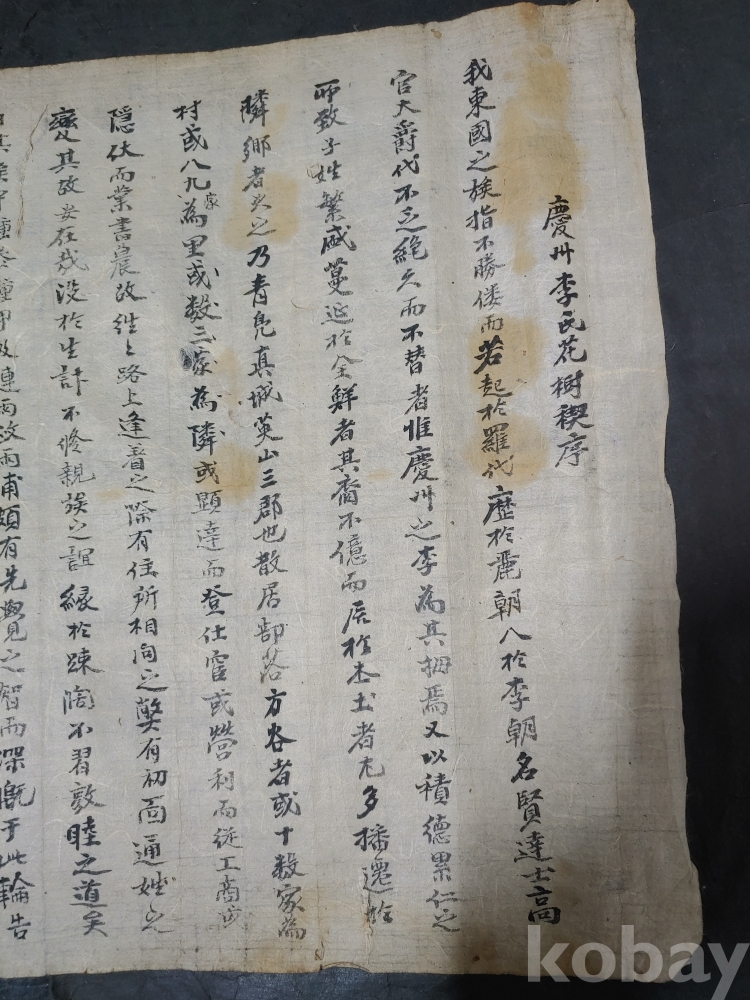 慶州李氏花樹稧序
我東國之族指不勝僂而若起於羅代歷於麗朝入於李朝名賢達士高
官大爵代不乏絶久而不替者惟慶州之李為其拇焉又以積德累仁之
所致子姓繁盛蔓延於全鮮者其裔不億而居於本土者尤多播遷於
隣鄉者次之乃青鳧真城英山三郡也散居部落方谷者或十數家為
村或八九家為里或數三家為隣或顯達而登仕宦或營利而從工商或
隱伏而業書農故往々路上逢着之際有住所相問之弊有初面通姓之
變其故安在哉沒於生計不修親族之誼緣於踈濶不習敦睦之道矣
連雨汝雨甫頗有先覺之智而深慨于此輪告
kobay